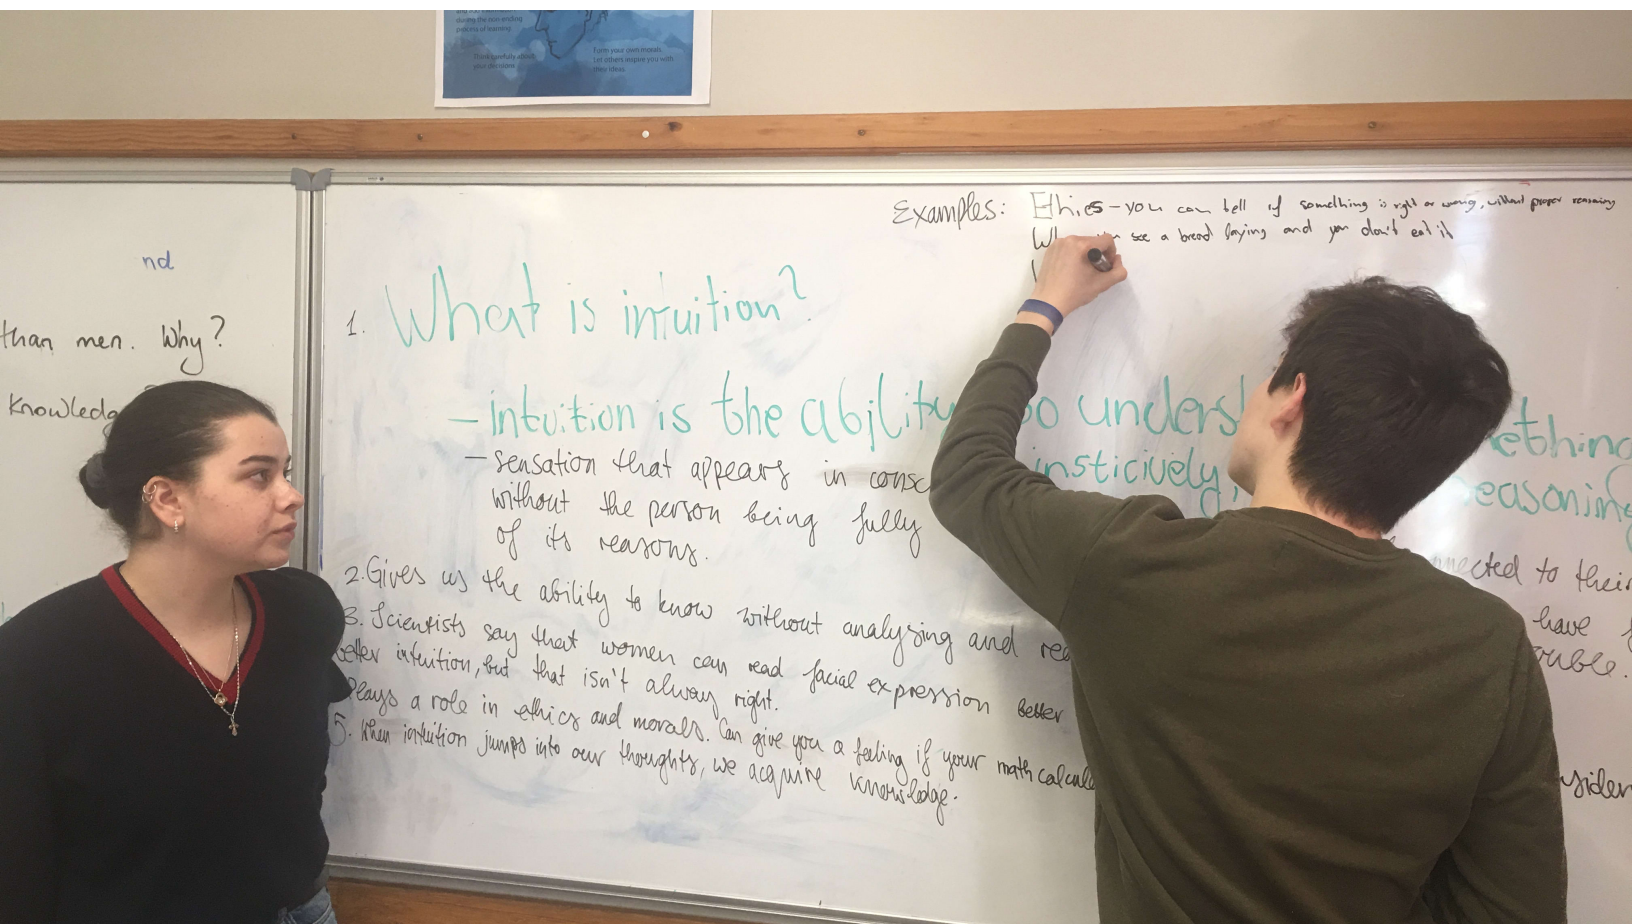 during the non-ending
process of learning
Think carefully about
your decisions
Form your own morals.
Let others inspire you with
their ideas
nd
than men. Why?
Knowledg
Examples: Ethics - you can tell if something is right or wrong, without proper reasoning
see a bread laying and you don't eat it
1. What is intuition?
- intuition is the ability to unders ething
insticively, easoning
- sensation that appears in consc
without the person being fully
of its reasons.
nected to their
have
ouble.
2. Gives us the ability to know without analysing and rea
3. Scientists say that women can read facial expression better
better intuition, but that isn't always right.
Plays a role in ethics and morals. Can give you a feeling if your math calcula
5. When intuition jumps into our thoughts, we acquire knowledge.